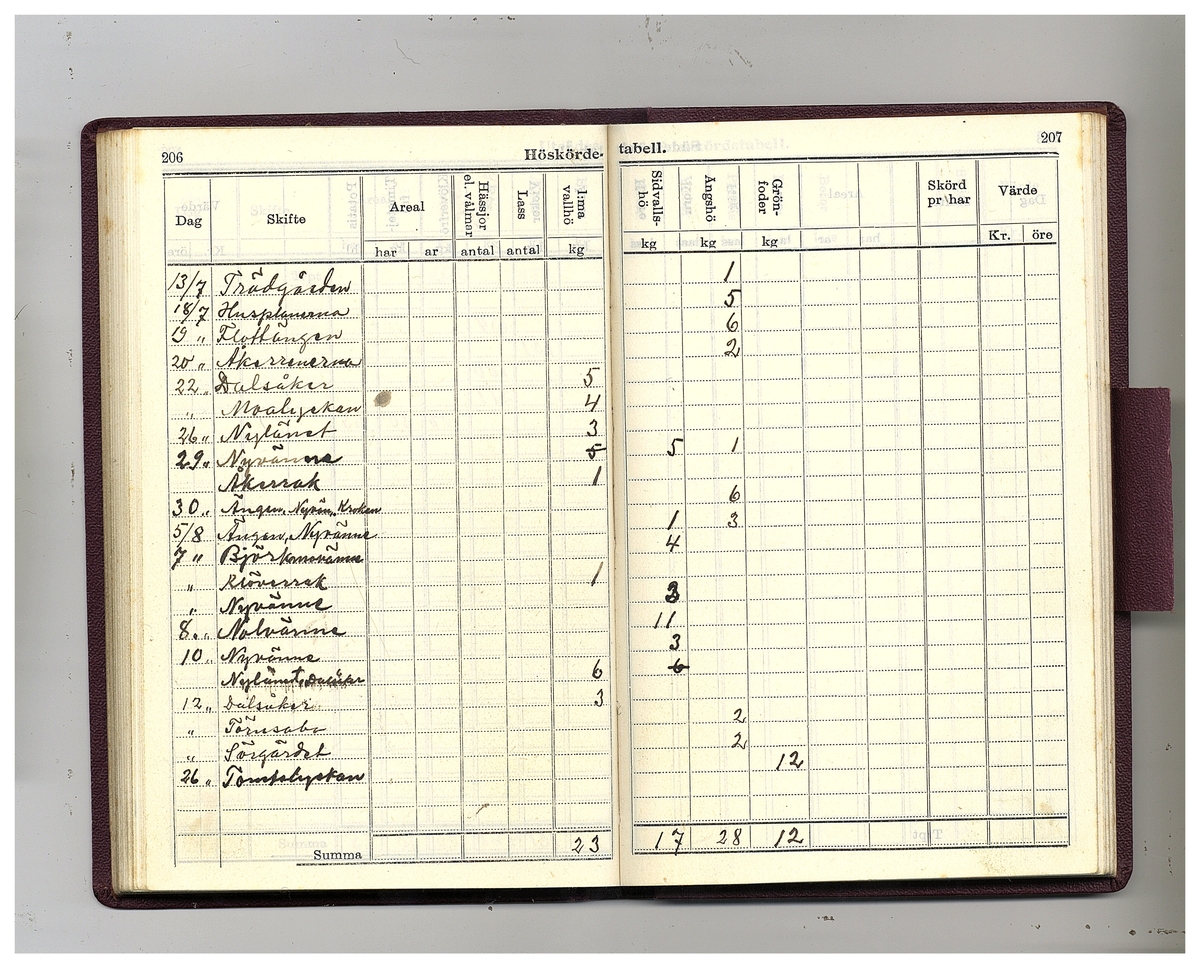 206
Höskörde-
Dag Skifte Areal Hässjor el. vålmar Lass I:ma vallhö
har ar antal antal kg
13/7 Trädgården
18/7 Husplanerna
19 " Flottängen
20 " Åkerrenerna
22 " Dalsåker 5
" Moalyckan 4
26 " Nylänet 3
29 " Nyvänne 5
Åkerrak 1
30 " Ängen, Nyvän., Kroken
5/8 Ängen, Nyvänne
7 " Björkmovänne
" Klöverrak 1
" Nyvänne
8 " Nolvänne
10 " Nyvänne
Nylänet, Dalsåker 6
12 " Dalsåker 3
" Törnsabo
" Sörgärdet
26 " Tomtelyckan
Summa 23
207
tabell.
Sidvalls-hö Ängshö Grön-foder Skörd pr har Värde
kg kg kg Kr. öre
1
5
6
2
5 1
6
1 3
4
3
11
3
6
2
2
12
17 28 12